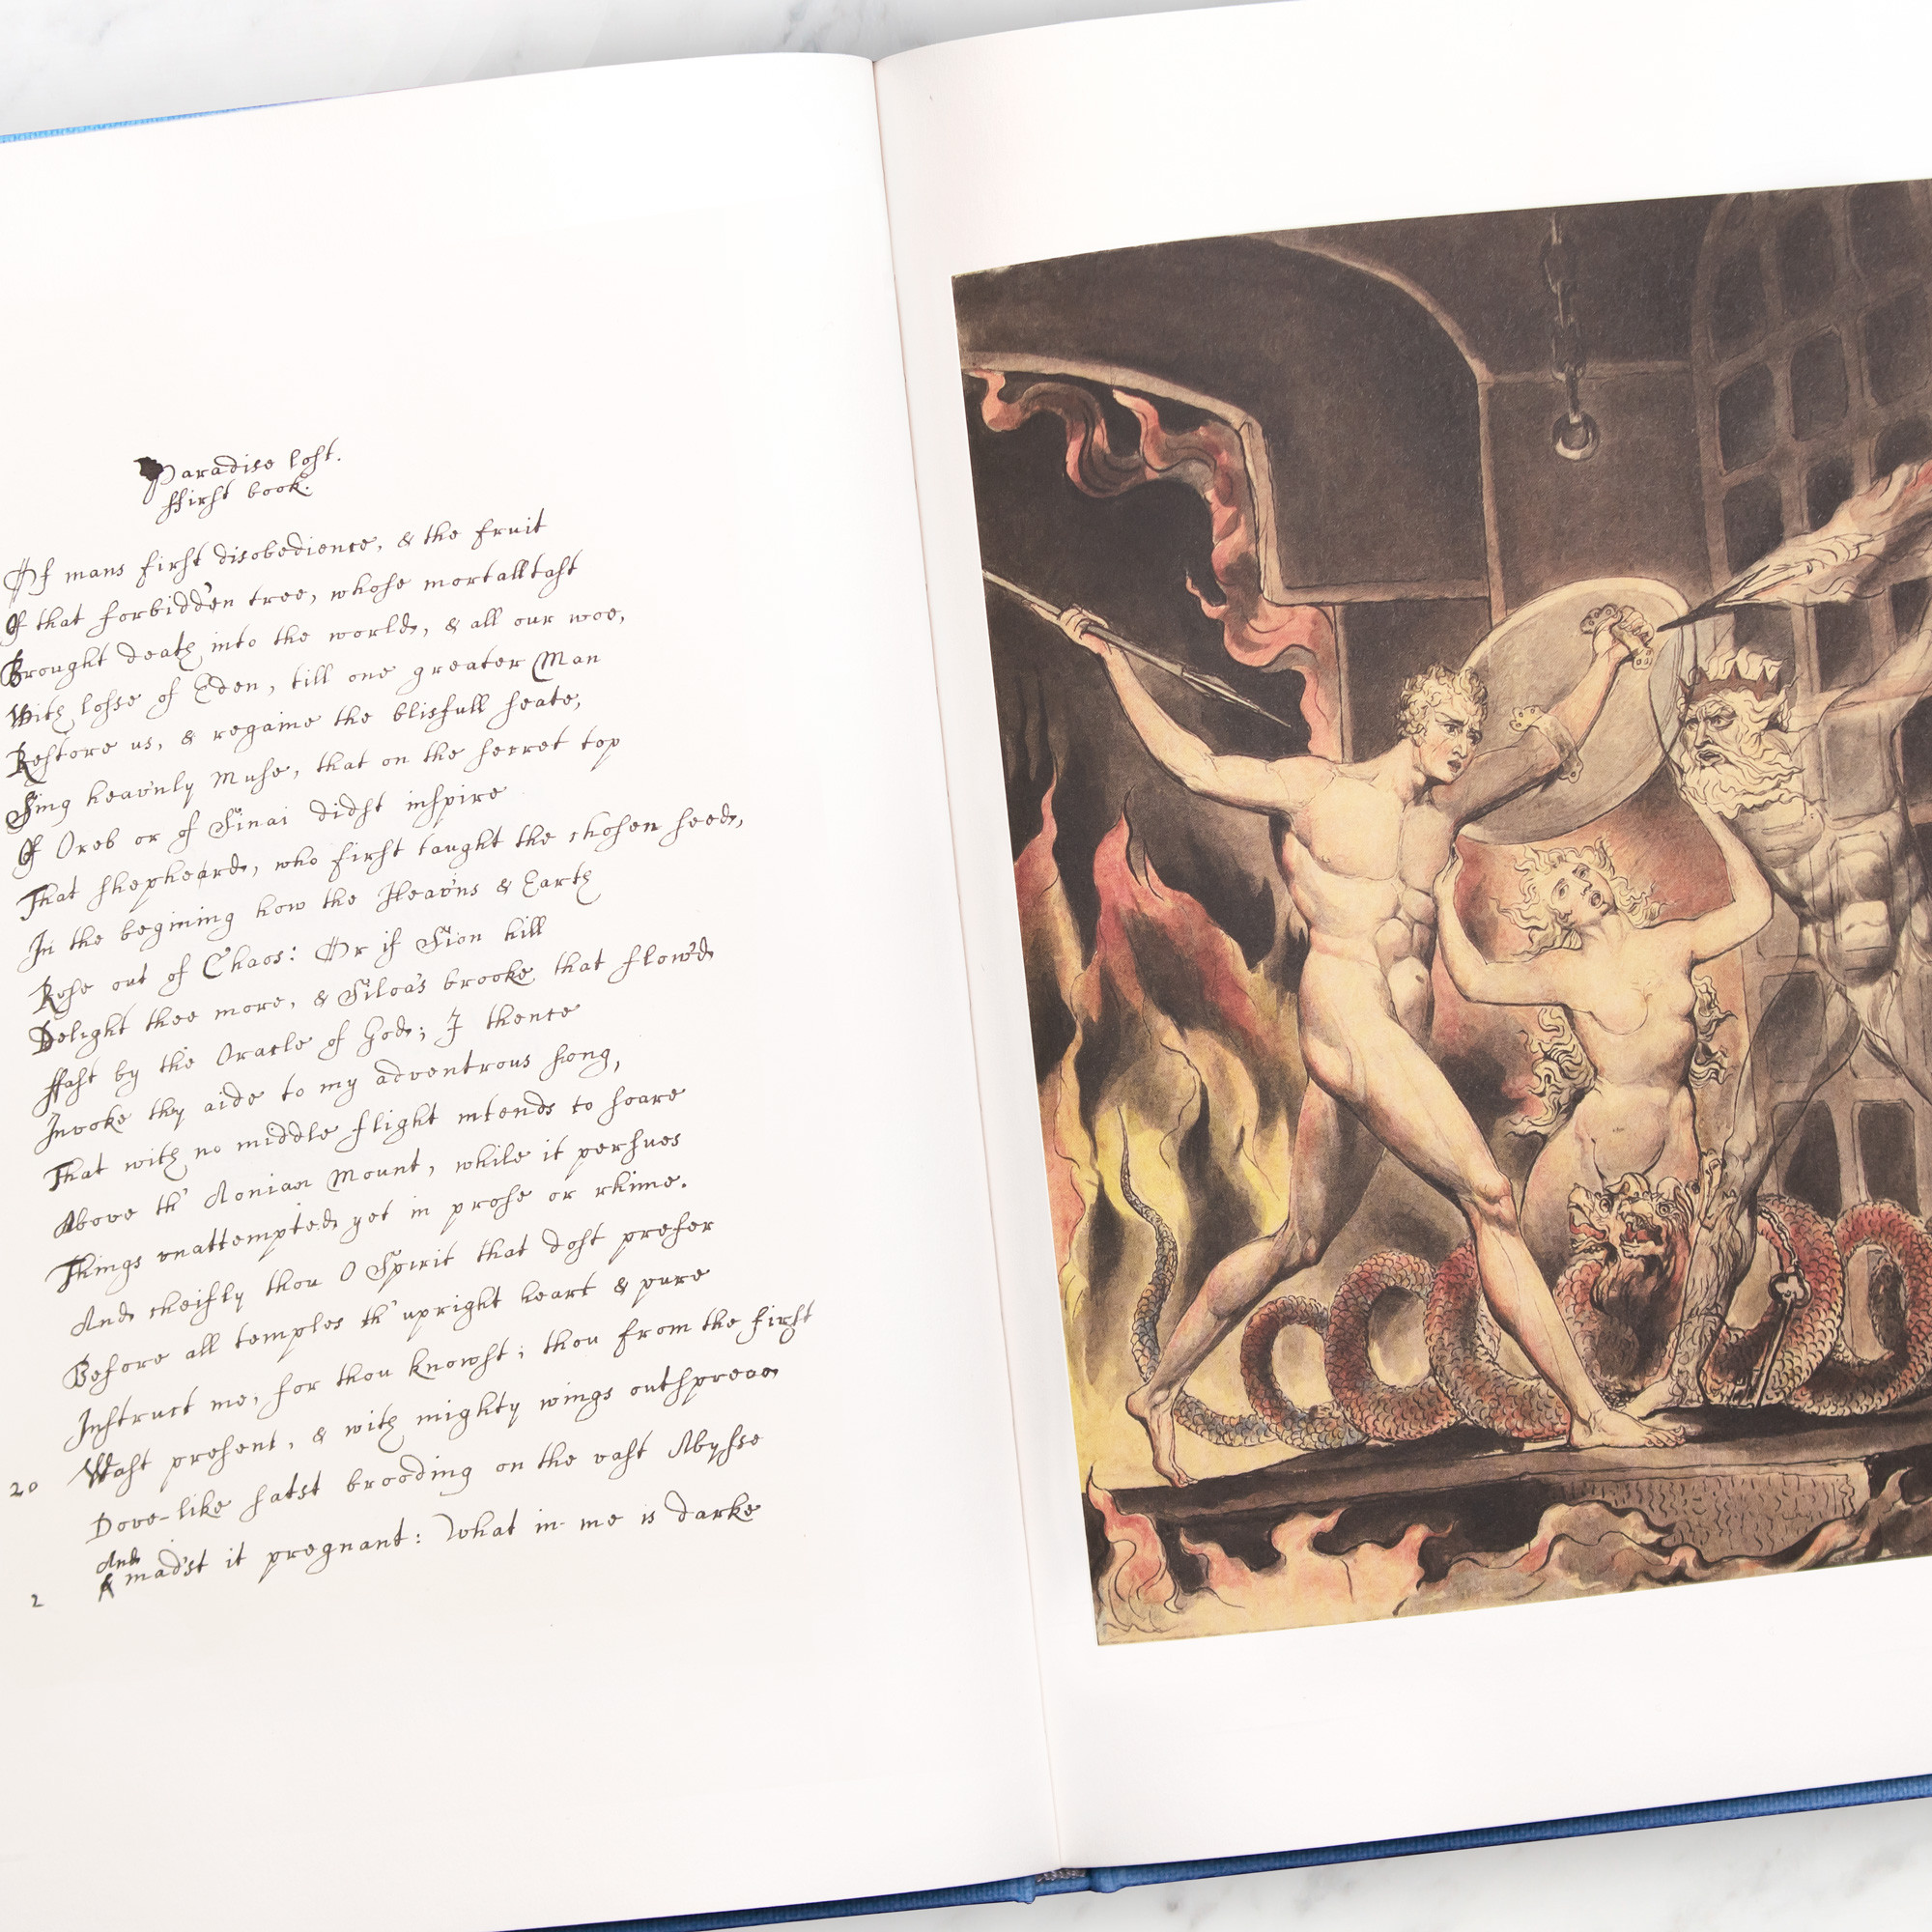 Paradise lost.
ffirst book.
Of mans first disobedience, & the fruit
Of that forbidd'en tree, whose mortall tast
Brought death into the world, & all our woe,
With losse of Eden, till one greater Man
Restore us, & regaine the blisfull seate,
Sing heav'nly Muse, that on the secret top
Of Oreb or of Sinai didst inspire
That shepheard, who first taught the chosen seed,
In the begining how the Heav'ns & Earth
Rose out of Chaos: Or if Sion hill
Delight thee more, & Siloa's brooke that flow'd
ffast by the Oracle of God; I thence
Invoke thy aide to my adventrous song,
That with no middle flight intends to soare
Above th' Aonian Mount, while it persues
Things vnattempted yet in prose or rhime.
And cheifly thou O Spirit that dost prefer
Before all temples th' upright heart & pure
Instruct me, for thou knowst; thou from the first
20 Wast present, & with mighty wings outspread
Dove-like satst brooding on the vast Abysse
And
& mad'st it pregnant: What in me is darke
2